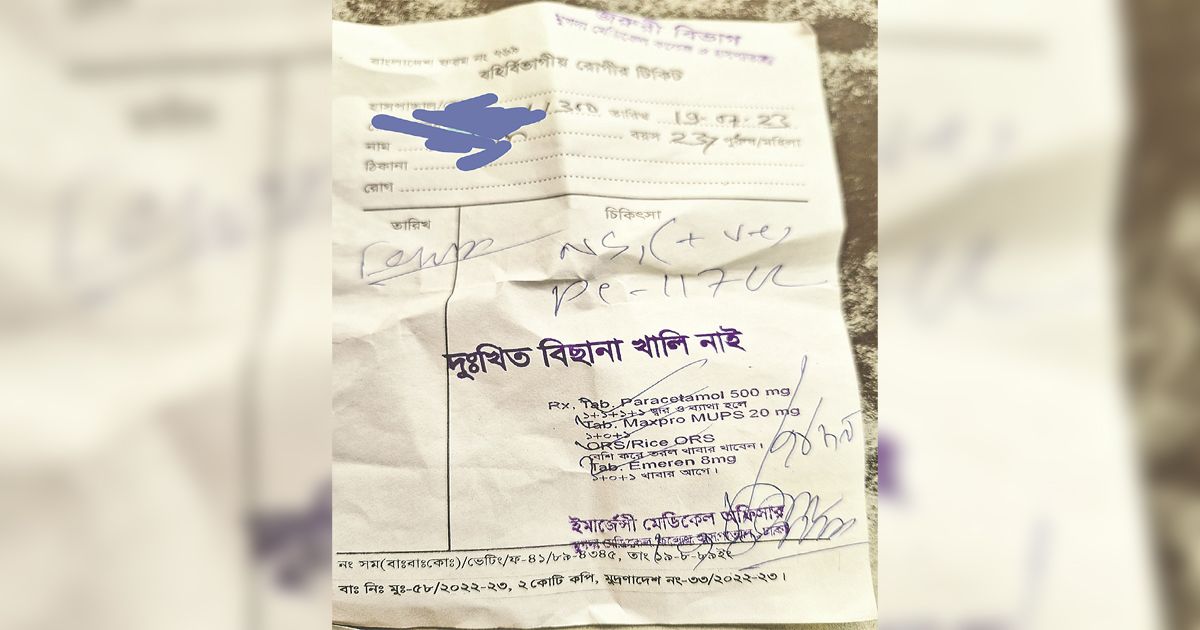 জরুরী বিভাগ
মুগদা মেডিকেল কলেজ ও হাসপাতাল
বাংলাদেশ ফরম নং ৭৬৯
বহির্বিভাগীয় রোগীর টিকিট
হাসপাতাল/ তারিখ 19-07-23
নাম বয়স 23y পুরুষ/মহিলা
ঠিকানা
রোগ
তারিখ চিকিৎসা
NS1 (+ve)
দুঃখিত বিছানা খালি নাই
Rx. Tab. Paracetamol 500 mg
১+১+১+১ জ্বর ও ব্যাথা হলে
Tab. Maxpro MUPS 20 mg
১+০+১
ORS/Rice ORS
বেশি করে তরল খাবার খাবেন।
Tab. Emeren 8mg
১+০+১ খাবার আগে।
ইমার্জেন্সী মেডিকেল অফিসার
মুগদা মেডিকেল কলেজ হাসপাতাল, ঢাকা
নং সম(বাঃবাঃকোঃ)/ভেটিং/ফ-৪১/৮৯-৪৩৪৫, তাং ১৯-৮-৮৯ইং
বাঃ নিঃ মুঃ-৫৮/২০২২-২৩, ২ কোটি কপি, মুদ্রণাদেশ নং-৩৩/২০২২-২৩।